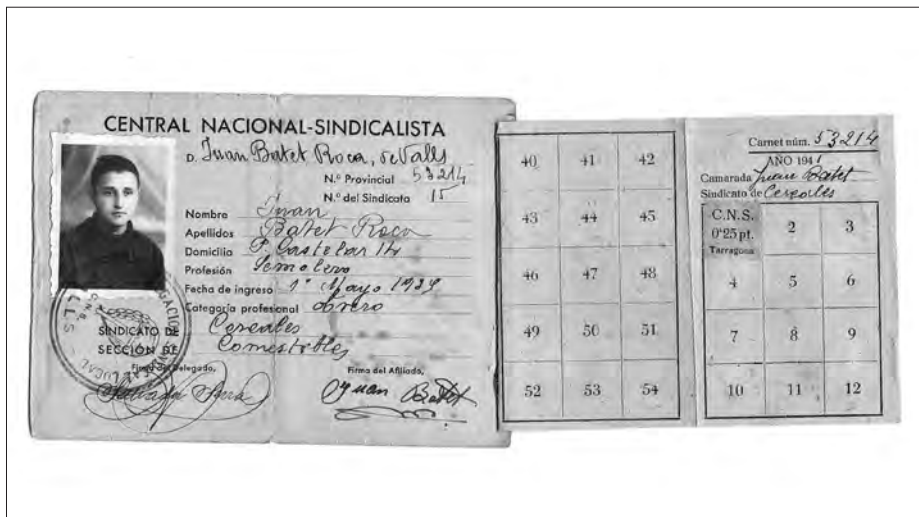 CENTRAL NACIONAL-SINDICALISTA
D. Juan Batet Roca, de Valls
N.º Provincial 53214
N.º del Sindicato 15
Nombre Juan
Apellidos Batet Roca
Domicilio P. Castelar
Profesión Semolero
Fecha de ingreso 1º Mayo 1939
Categoría profesional Obrero
SINDICATO DE Cereales
SECCIÓN DE Comestibles
Firma del Delegado,
Firma del Afiliado,
Juan Batet
40 41 42
43 44 45
46 47 48
49 50 51
52 53 54
Carnet núm. 53214
AÑO 1941
Camarada Juan Batet
Sindicato de Cereales
C.N.S.
0'25 pt.
Tarragona
2 3
4 5 6
7 8 9
10 11 12